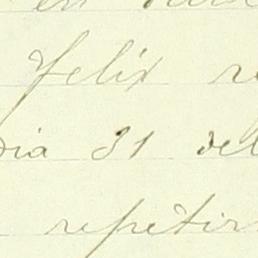 en
felix
dia 31 del
repetir